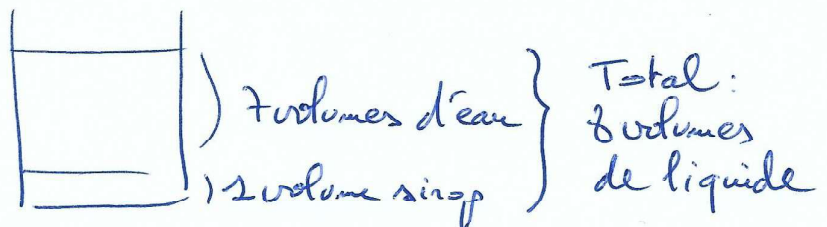 7 volumes d'eau
1 volume sirop
Total :
8 volumes
de liquide